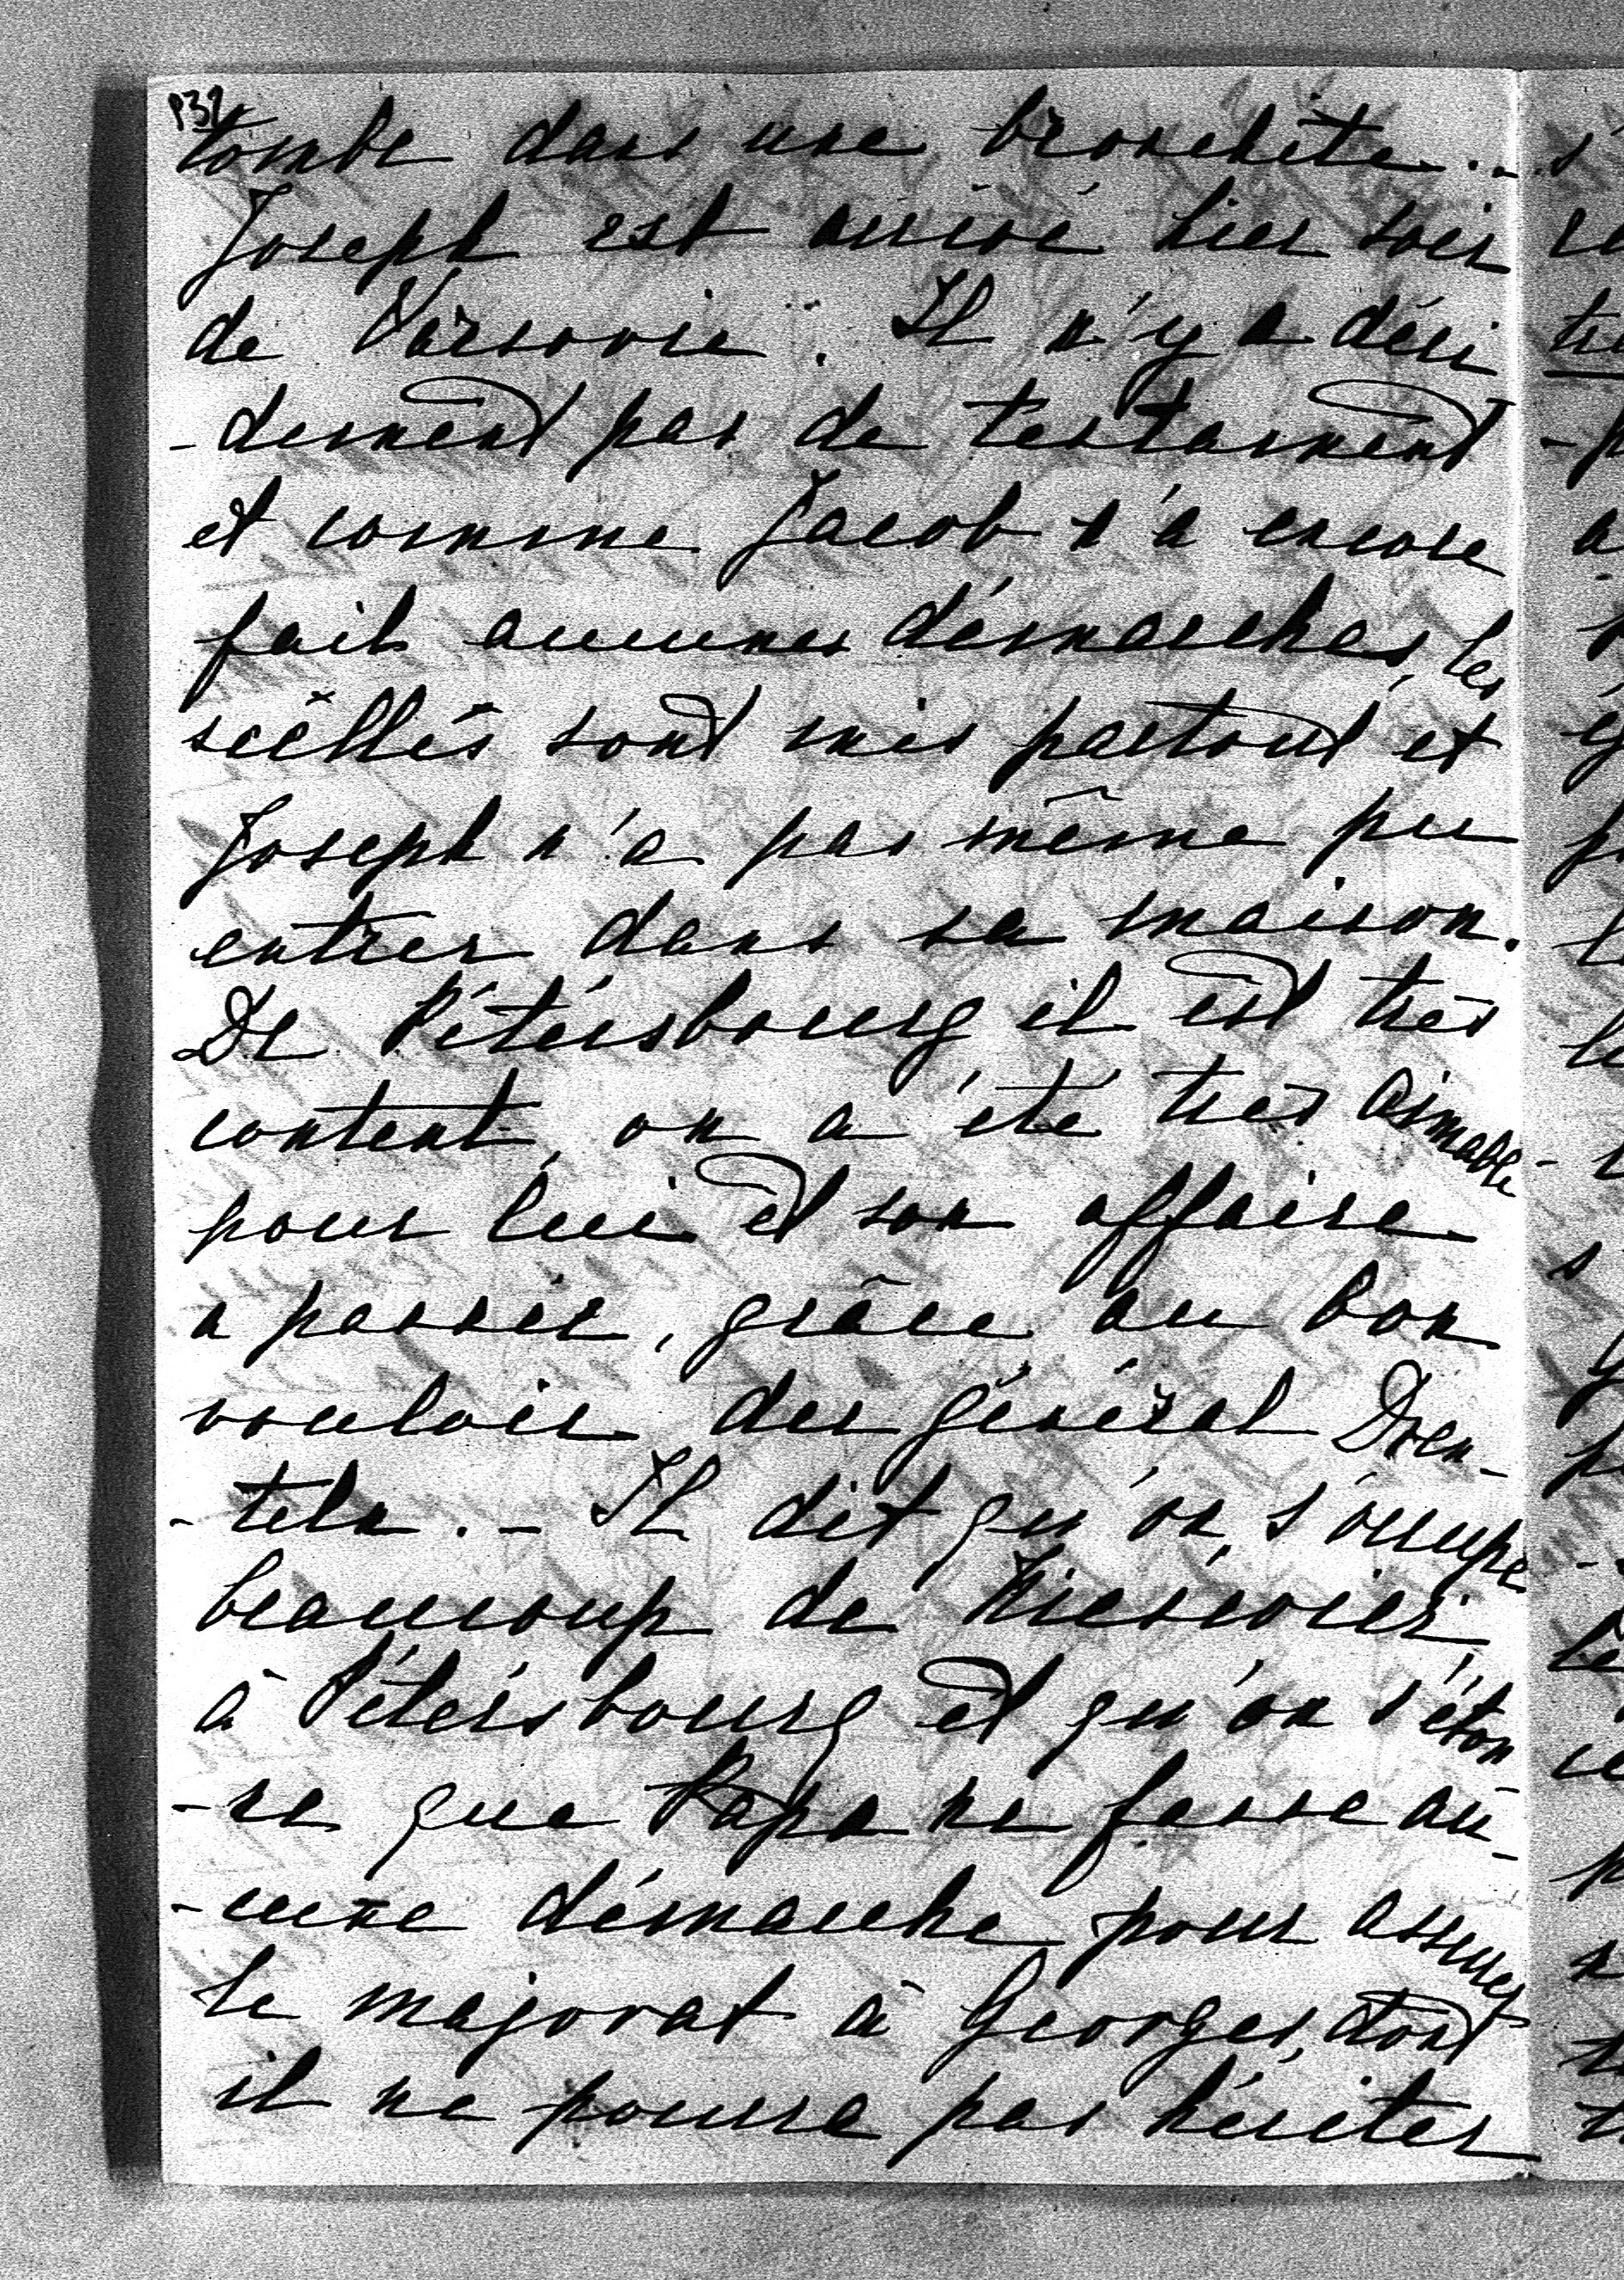 132
tombe dans une bronchite...
Joseph est arrivé hier soir
de Varsovie. Il n'y a déci
-dement pas de testament
et comme Jacob n'a encore
fait aucunes démarches, les
scéllés sont mis partout et
Joseph n'a pas même pu
entrer dans sa maison.
De Pétérsbourg il est très
content, on a été très aimable
pour lui et son affaire
a passée, grâce au bon
vouloir du général Dren-
-teln. - Il dit qu'on s'occupe
beaucoup de
à Pétérsbourg et qu'on s'éton
-ne que Papa ne fasse au-
-cune démarche pour assurer
le majorat à Georges, dont
il ne pourra pas hériter